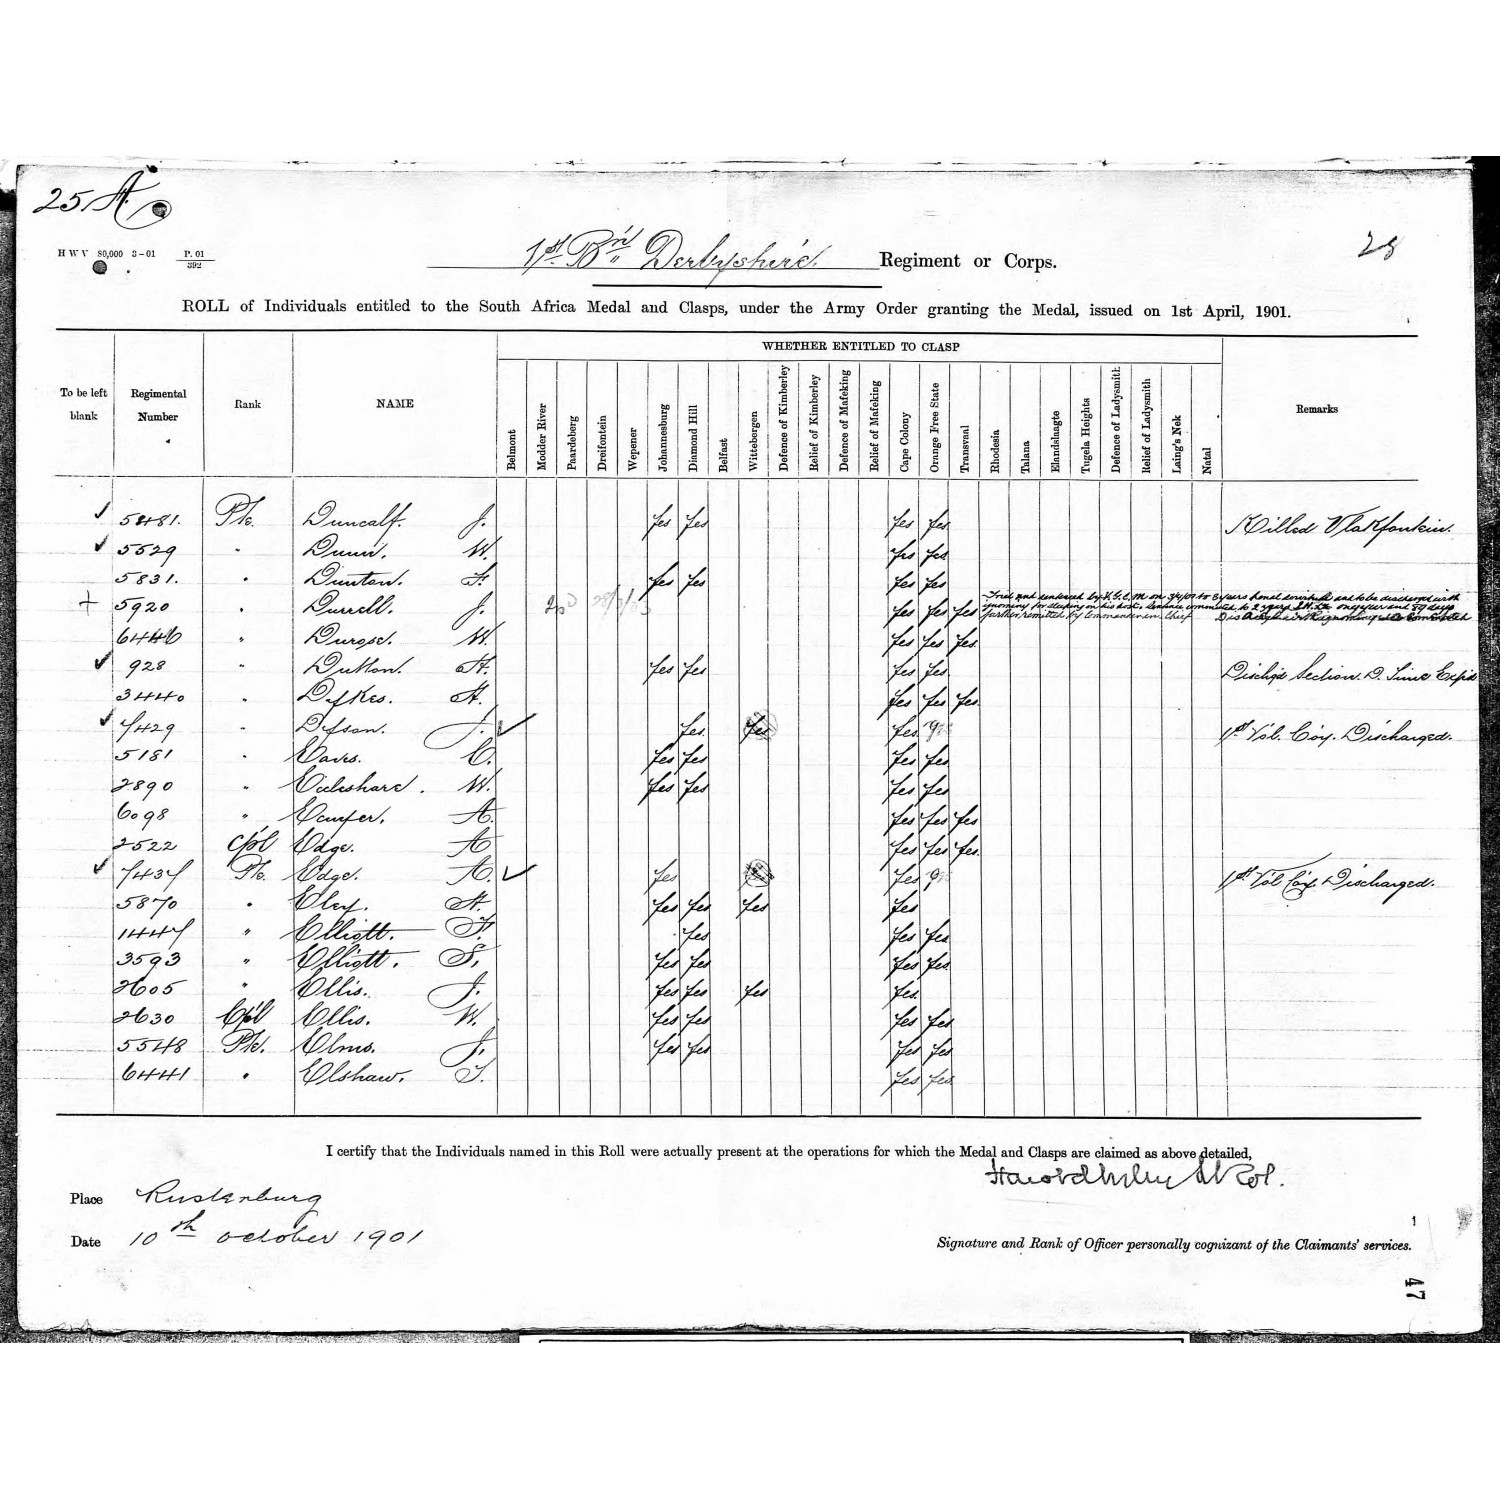 25 A.
H W V 80,000 3-01 P. 01/392
1st Bn Derbyshire Regiment or Corps. 28
ROLL of Individuals entitled to the South Africa Medal and Clasps, under the Army Order granting the Medal, issued on 1st April, 1901.
WHETHER ENTITLED TO CLASP
To be left blank Regimental Number Rank NAME Belmont Modder River Paardeberg Dreifontein Wepener Johannesburg Diamond Hill Belfast Wittebergen Defence of Kimberley Relief of Kimberley Defence of Mafeking Relief of Mafeking Cape Colony Orange Free State Transvaal Rhodesia Talana Elandslaagte Tugela Heights Defence of Ladysmith Relief of Ladysmith Laing's Nek Natal Remarks
✓ 5481. Pte. Duncalf. J. Yes Yes Yes Yes Killed Vlakfontein.
✓ 5529 " Dunn. W. Yes Yes
5831. " Dunton. F. Yes Yes Yes Yes
+ 5920 " Durrell. J. Yes Yes Yes Tried and sentenced by F.G.C.M. on to 3 years penal servitude and to be discharged with
ignominy for sleeping on his post. Sentence commuted to 2 years I.H.L. one year and days
further remitted by Commander in Chief Discharge with ignominy
6446 " Durose. W. Yes Yes Yes.
✓ 928 " Dutton. H. Yes Yes Yes Yes. Disch'gd Section D. Time Exp'd
3440 " Dykes. H. Yes Yes Yes.
✓ 7429 " Dyson. J. ✓ Yes. Yes Yes. 1st Vol. Coy. Discharged.
5181 " Eaves. C. Yes Yes Yes Yes
2890 " Eccleshare. W. Yes Yes Yes Yes
6098 " A. Yes Yes Yes
2522 Cpl Edge. A Yes Yes Yes.
✓ 7437 Pte. Edge. A. ✓ Yes Yes 1st Vol Coy. Discharged.
5870 " Eley. H. Yes Yes Yes Yes
1447 " Elliott. F. Yes Yes Yes
3593 " Elliott. S. Yes Yes Yes Yes
2605 " Ellis. J. Yes Yes Yes Yes.
2630 Cpl Ellis. W. Yes Yes Yes Yes
5548 Pte. Elms. J. Yes Yes Yes Yes
6441 " Elshaw. T. Yes Yes
I certify that the Individuals named in this Roll were actually present at the operations for which the Medal and Clasps are claimed as above detailed,
Place Rustenburg
Date 10th October 1901
Signature and Rank of Officer personally cognizant of the Claimants' services.
1
47